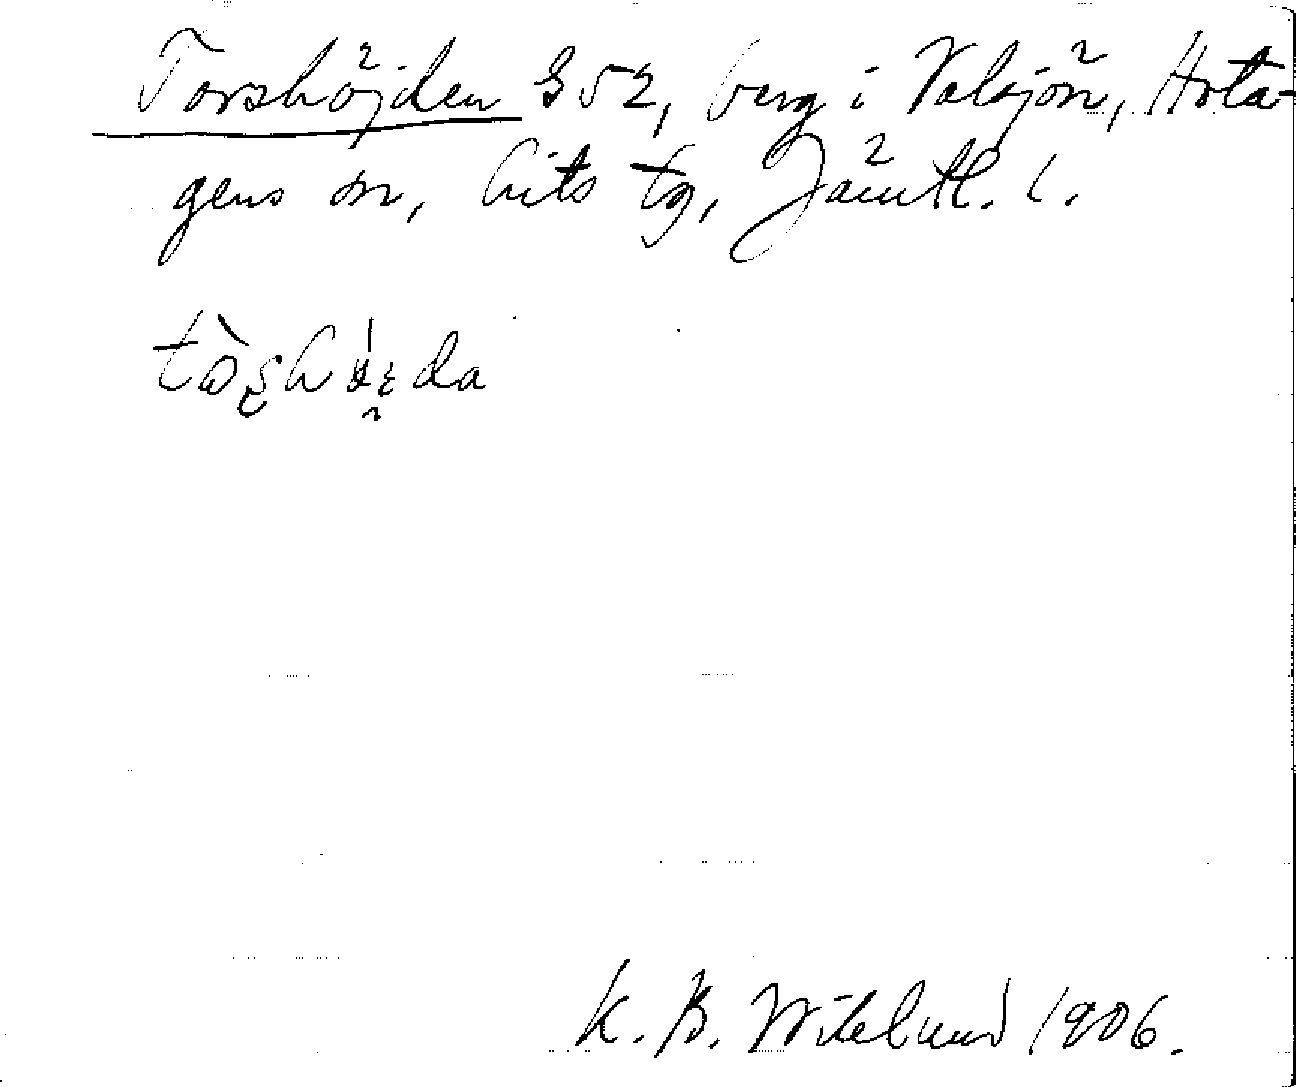 Torshöjden G52, berg i Valsjön, Hota-
gens sn, Lits tg, Jämtl. l.
K. B. Wiklund 1906.